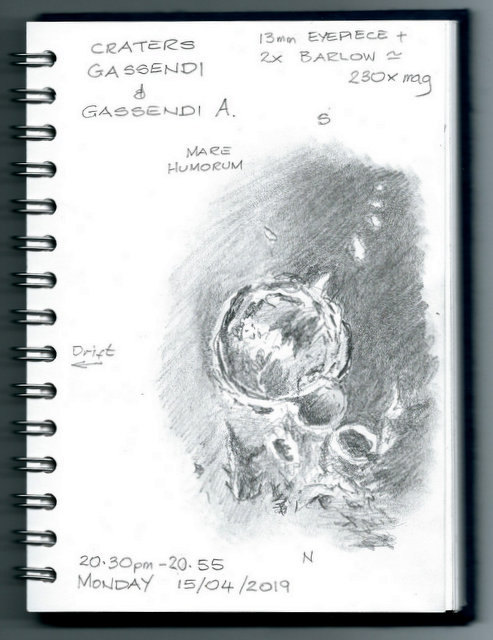 CRATERS
GASSENDI
&
GASSENDI A.
13mm EYEPIECE +
2x BARLOW ≃
230x mag
S
MARE
HUMORUM
Drift
←
N
20.30pm - 20.55
MONDAY 15/04/2019